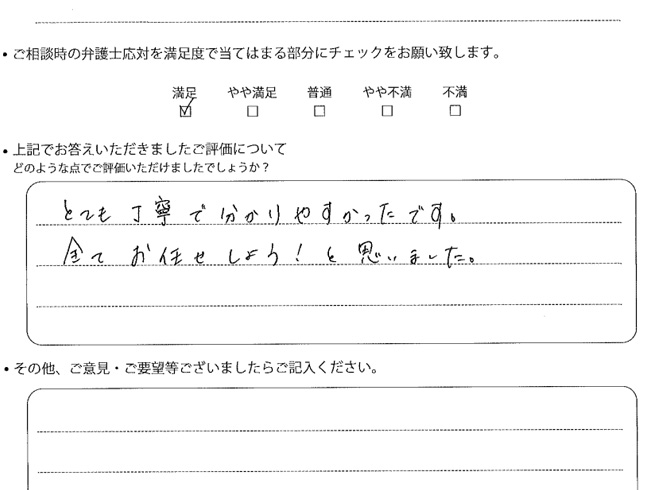 • ご相談時の弁護士応対を満足度で当てはまる部分にチェックをお願い致します。
満足 やや満足 普通 やや不満 不満
☑ □ □ □ □
• 上記でお答えいただきましたご評価について
どのような点でご評価いただけましたでしょうか？
とても丁寧で分かりやすかったです。
全てお任せしよう！と思いました。
• その他、ご意見・ご要望等ございましたらご記入ください。